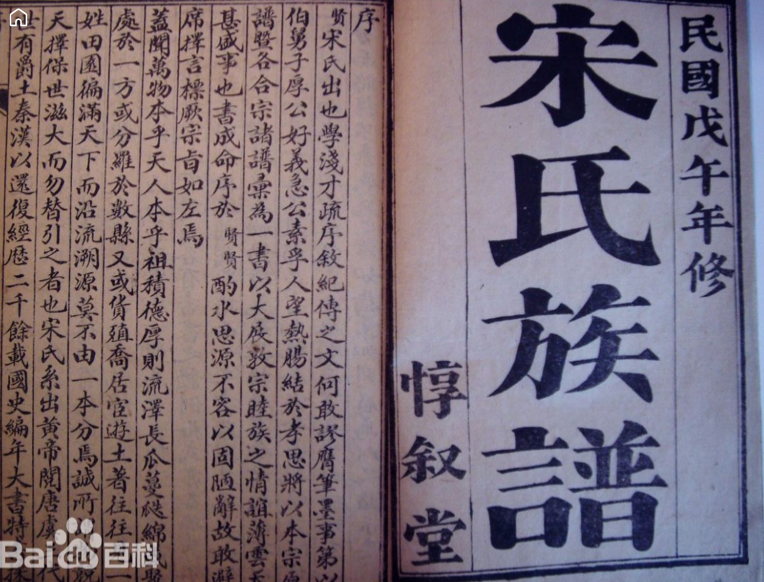 民國戊午年修
宋氏族譜
惇叙堂
序
賢宋氏出也學淺才疏序敘紀傳之文何敢謬膺筆墨事第以
伯舅子厚公好義急公素孚人望熱腸結於孝思將以本宗原
譜暨各合宗諸譜彙為一書以大展敦宗睦族之情誼薄雲天
甚盛事也書成命序於賢賢酌水思源不容以固陋辭故敢避
席擇言標厥宗旨如左焉
蓋聞萬物本乎天人本乎祖積德厚則流澤長瓜蔓瓞綿
處於一方或分雖於數縣又或貨殖喬居宦遊土著往往一
姓田園徧滿天下而沿流溯源莫不由一本分焉誠所
天擇保世滋大而勿替引之者也宋氏系出黃帝閱唐虞代
世有爵土秦漢以還復經歷二千餘載國史編年大書特
Bai百科